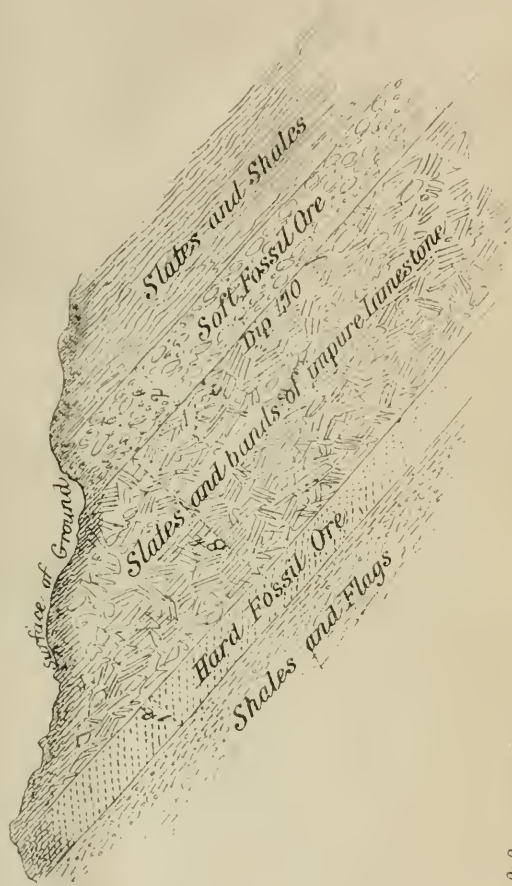 Surface of Ground
Slates and Shales
Soft Fossil Ore
Slates and bands of impure limestone
Hard Fossil Ore
Shales and Flags